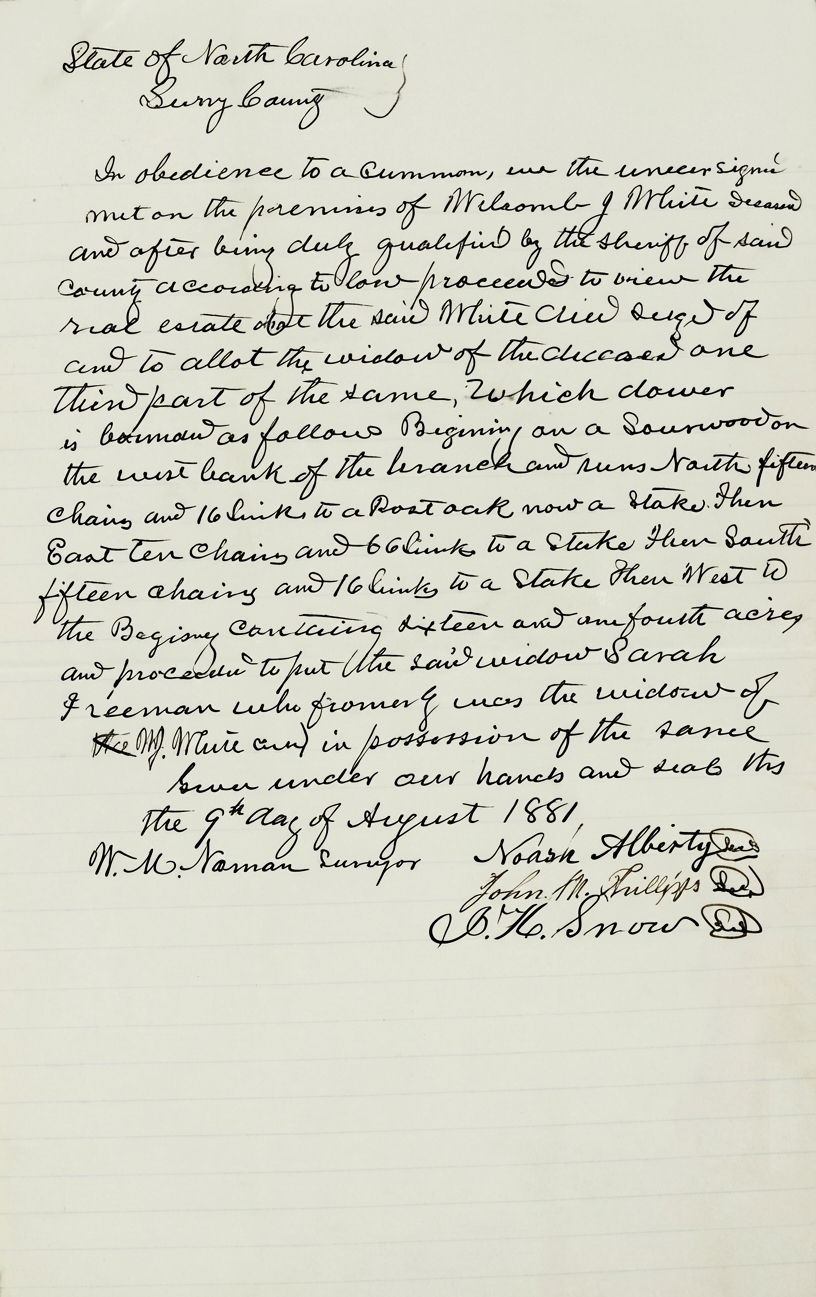 State of North Carolina
Surry County
In obedience to a summon, we the undersigned
met on the premises of Welcomb J White deceased
and after being duly qualified by the sheriff of said
County according to law proceeded to view the
real estate that the said White died seized of
and to allot the widow of the deceased one
third part of the same, Which dower
is bounded as follows Begining on a Sourwood on
the west bank of the branch and runs North fifteen
chains and 16 links to a Post oak now a Stake Then
East ten chains and 66 links to a Stake Then South
fifteen chains and 16 links to a Stake Then West to
the Begining containing sixteen and one fourth acres
and proceeded to put the said widow Sarah
Freeman who fromerly was the widow of
the W J. White in possession of the same
Given under our hands and seals this
the 9th day of August 1881
W. M. Norman Surveyor Noah Alberty Seal
John. M. Phillips Seal
J. H. Snow Seal